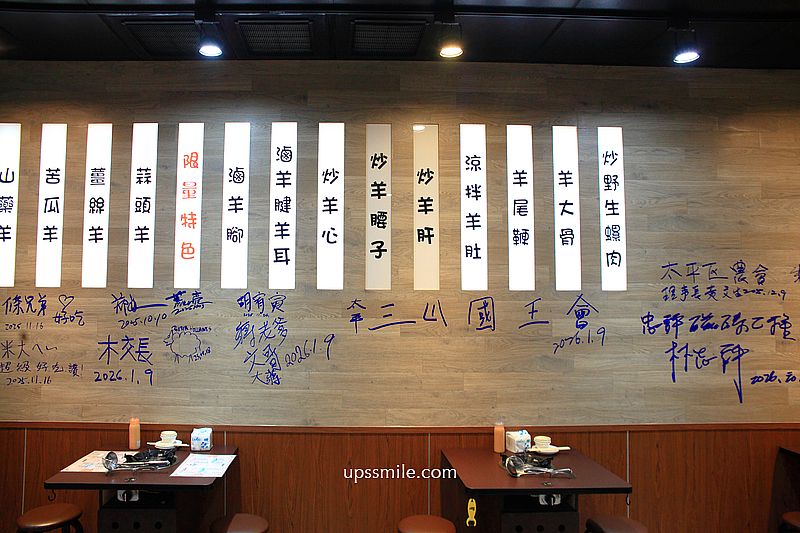 山藥羊
苦瓜羊
薑絲羊
蒜頭羊
限量特色
滷羊腳
滷羊腱羊耳
炒羊心
炒羊腰子
炒羊肝
涼拌羊肚
羊尾鞭
羊大骨
炒野生螺肉
條兄弟♡
好吃
2025.11.16
米大
超級好吃讚!
2025.11.16
2025.10.10
木交長
2026.1.9
胡宥寅
2026.1.9
太平三山國王會
2026.1.9
太平区農會
2025.12.9
upssmile.com